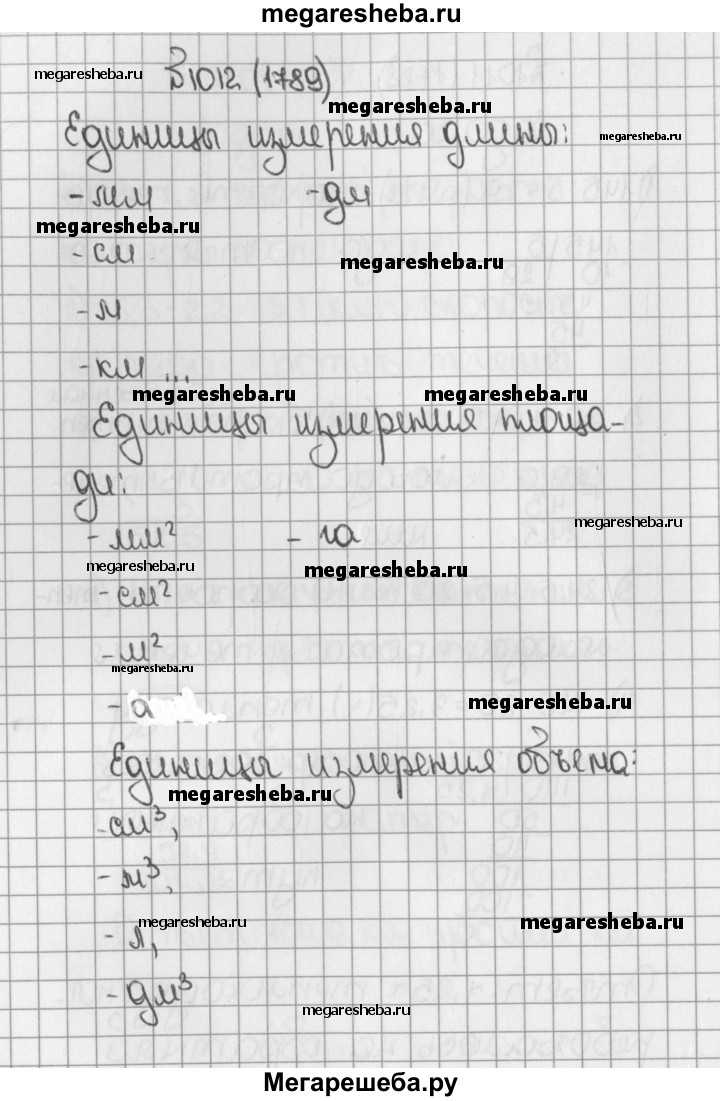 megaresheba.ru
megaresheba.ru
В1012 (1789)
megaresheba.ru
megaresheba.ru
Единицы измерения длины:
- мм - дм
megaresheba.ru
- см
megaresheba.ru
- м
- км ...
megaresheba.ru megaresheba.ru
Единицы измерения площа-
ди:
megaresheba.ru
- мм² - га
megaresheba.ru
megaresheba.ru
- см²
- м²
megaresheba.ru
- а
megaresheba.ru
Единицы измерения объема:
megaresheba.ru
- см³,
- м³,
megaresheba.ru
megaresheba.ru
- л,
- дм³
megaresheba.ru
Мегарешеба.ру